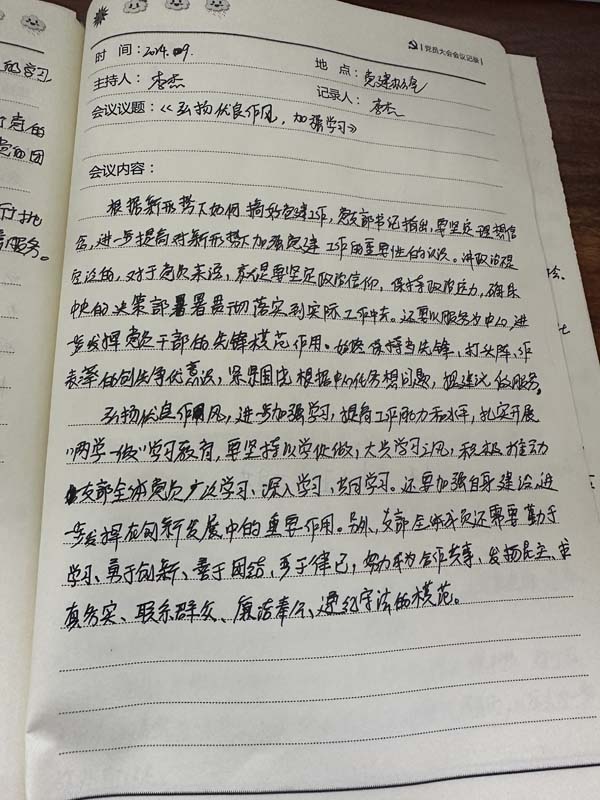 党员大会会议记录
时 间：2014.09.
地 点：党建办公室
主持人：李杰
记录人：李杰
会议议题：《弘扬优良作风，加强学习》
会议内容：
根据新形势下如何搞好党建工作，党支部书记指出，要坚定理想信
念，进一步提高对新形势下加强党建工作的重要性的认识。讲政治是
的，对于党员来说，就是要坚定政治信仰，保持政治定力，确保
中央的决策部署署贯彻落实到实际工作中去。还要以服务为中心，进一
步发挥党员干部的先锋模范作用。始终保持当先锋，打头阵，作
表率的创先争优意识，紧紧围绕根据中心任务想问题，提建议，做服务。
弘扬优良作风，进一步加强学习，提高工作能力和水平，扎实开展
“两学一做”学习教育，要坚持以学促做，大兴学习之风，积极推动
支部全体党员广泛学习、深入学习、共同学习。还要加强自身建设，进一
步发挥在创新发展中的重要作用。另外，支部全体成员还需要勤于
学习、勇于创新、善于团结、严于律己，努力成为合作共事、发扬民主、求
真务实、联系群众、廉洁奉公、遵纪守法的模范。
的学习
党的
党和团
行挑
服务。
会.
七